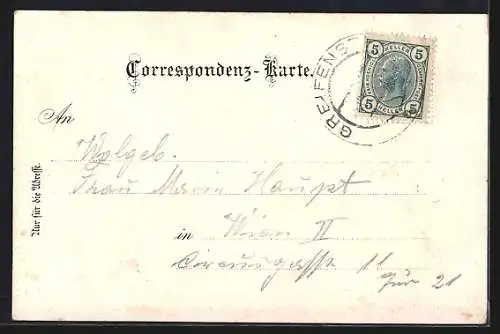 Correspondenz-Karte.
5 HELLER 5
5 HELLER 5
GREIFENST
An
Wolgeb.
Frau Marie Haupt
in Wien II
Circusgasse 11
Tür 21
Nur für die Adresse.